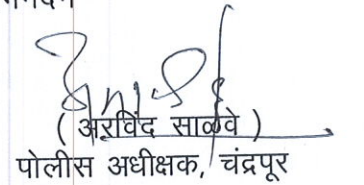 ( अरविंद साळवे )
पोलीस अधीक्षक, चंद्रपूर